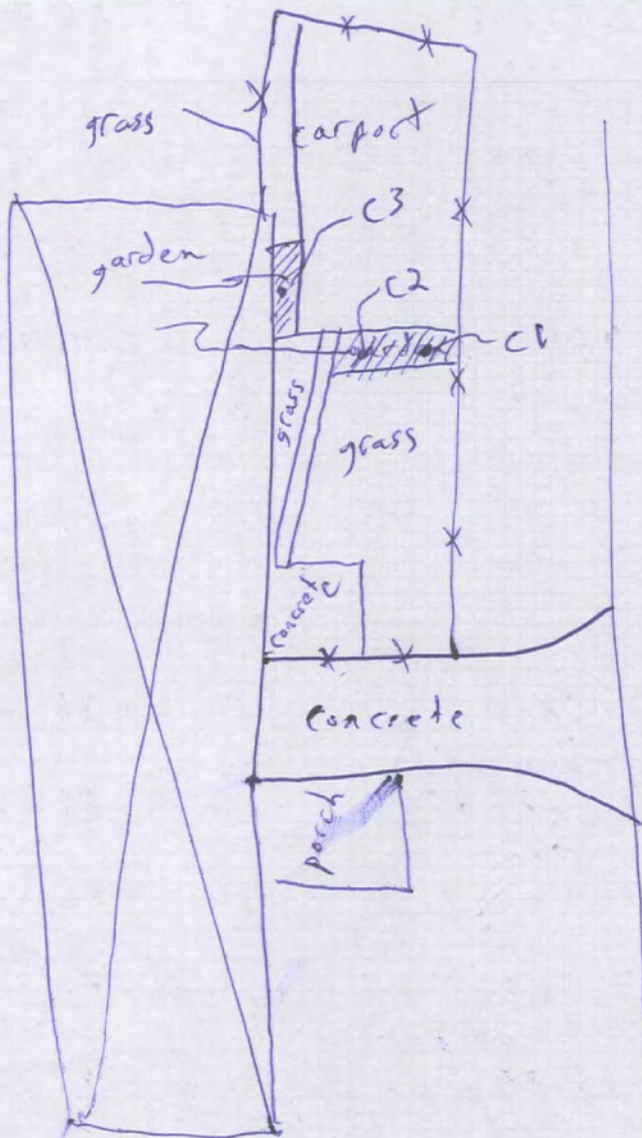 grass
carport
C3
garden
C2
C1
grass
grass
concrete
concrete
porch